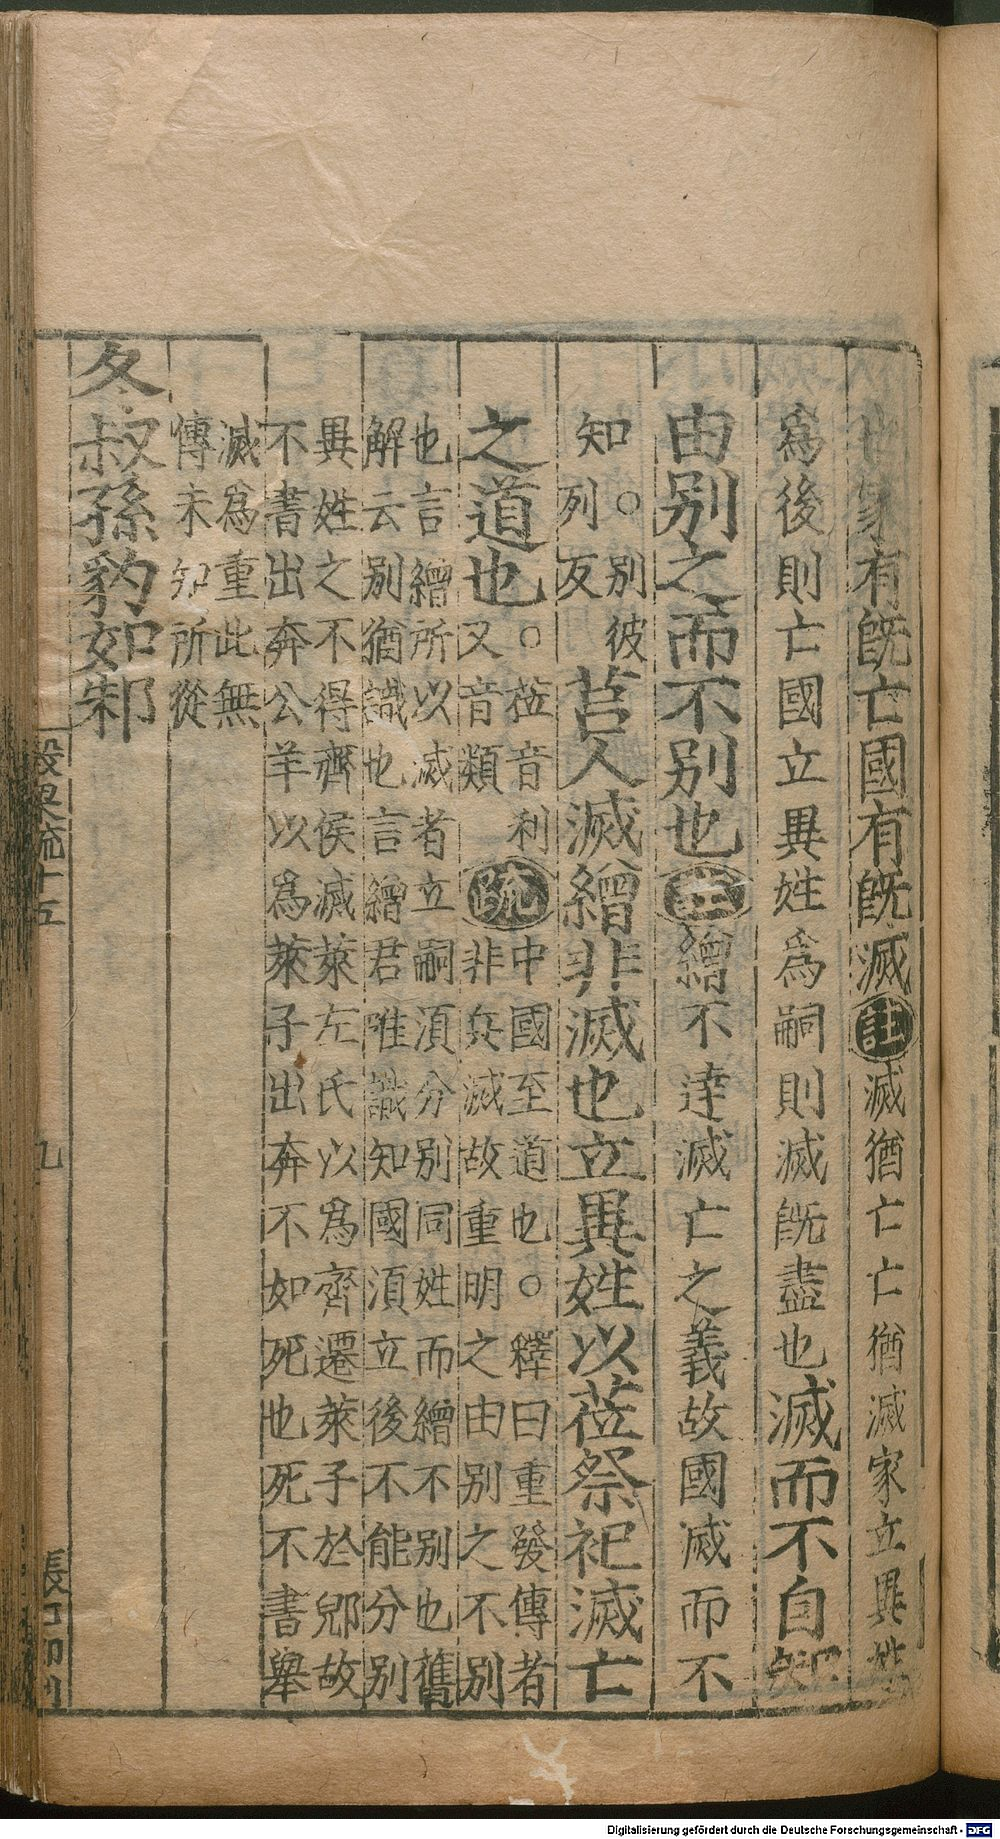 世家有旣亡國有旣滅註滅猶亡亡猶滅家立異姓
爲後則亡國立異姓爲嗣則滅旣盡也滅而不自知
由別之而不別也註繒不達滅亡之義故國滅而不
知○別彼
列反
莒人滅繒非滅也立異姓以莅祭祀滅亡
之道也○莅音利
又音類
疏中國至道也○釋曰重發傳者
非兵滅故重明之由別之不別
也言繒所以滅者立嗣須分別同姓而繒不別也舊
解云別猶識也言繒君唯識知國須立後不能分別
異姓之不得齊侯滅萊左氏以爲齊遷萊子於郳故
不書出奔公羊以爲萊子出奔不如死也死不書舉
滅爲重此無
傳未知所從
冬叔孫豹如邾
十五
九
Digitalisierung gefördert durch die Deutsche Forschungsgemeinschaft - DFG